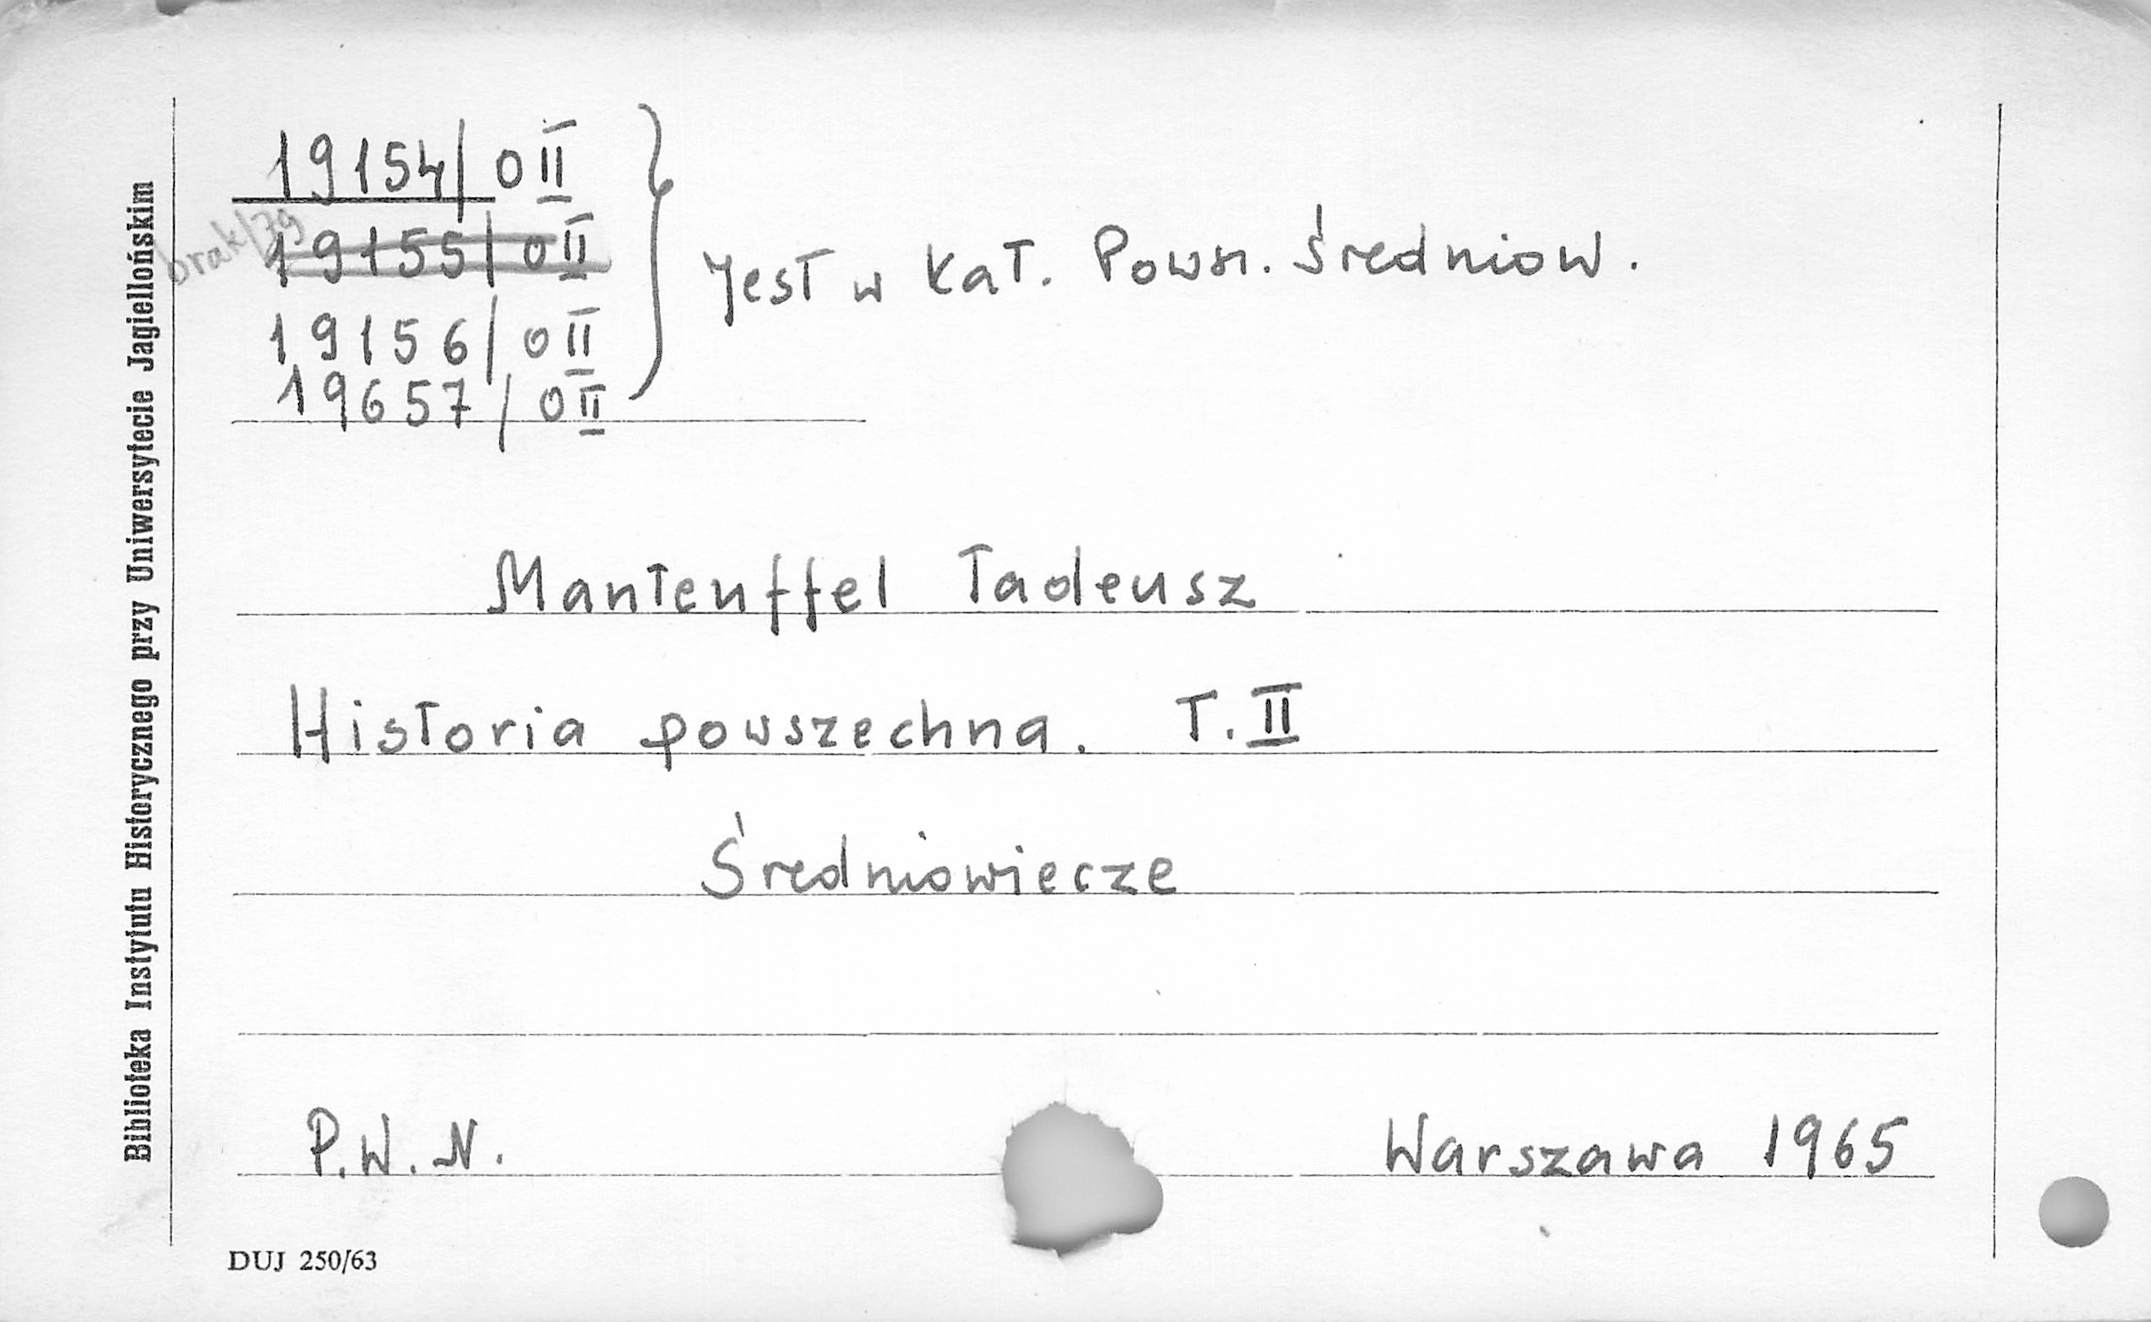 19154/0 II
brak/79
19155/0 II
19156/0 II
19657/0 II
Jest w kat. Powsz. Średniow.
Manteuffel Tadeusz
Historia powszechna. T. II
Średniowiecze
P.W.N. Warszawa 1965
DUJ 250/63
Biblioteka Instytutu Historycznego przy Uniwersytecie Jagiellońskim